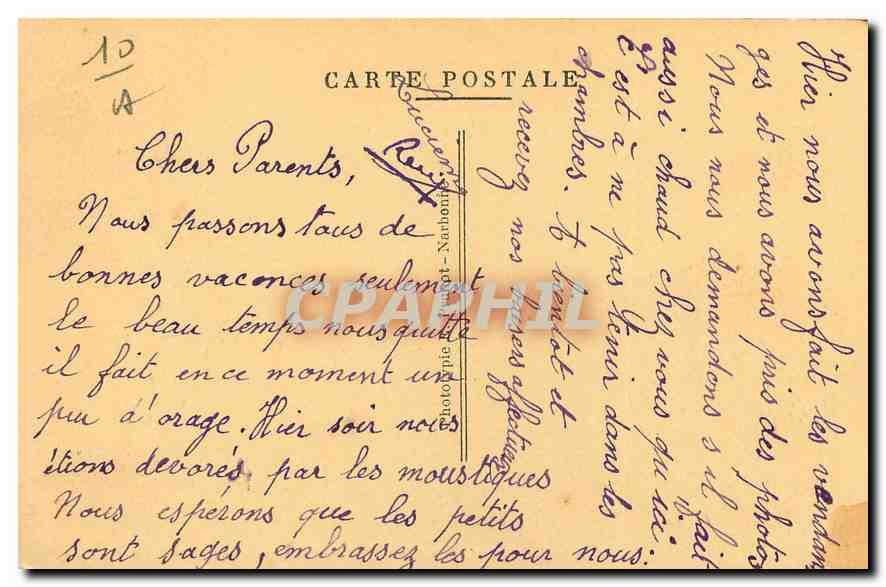 10
A
CARTE POSTALE
Chers Parents,
Nous passons tous de
bonnes vacances seulement
le beau temps nous quitte
il fait en ce moment un
peu d'orage. Hier soir nous
étions devorés par les moustiques
Nous espérons que les petits
sont sages, embrassez les pour nous.
Hier nous avons fait les vendan
ges et nous avons pris des photos
Nous nous demandons s'il fait
aussi chaud chez vous qu'ici
C'est à ne pas tenir dans les
chambres. A bientôt et
recevez nos baisers affectueux
Lucienne
René
Phototypie - Narbonne
CPAPHIL